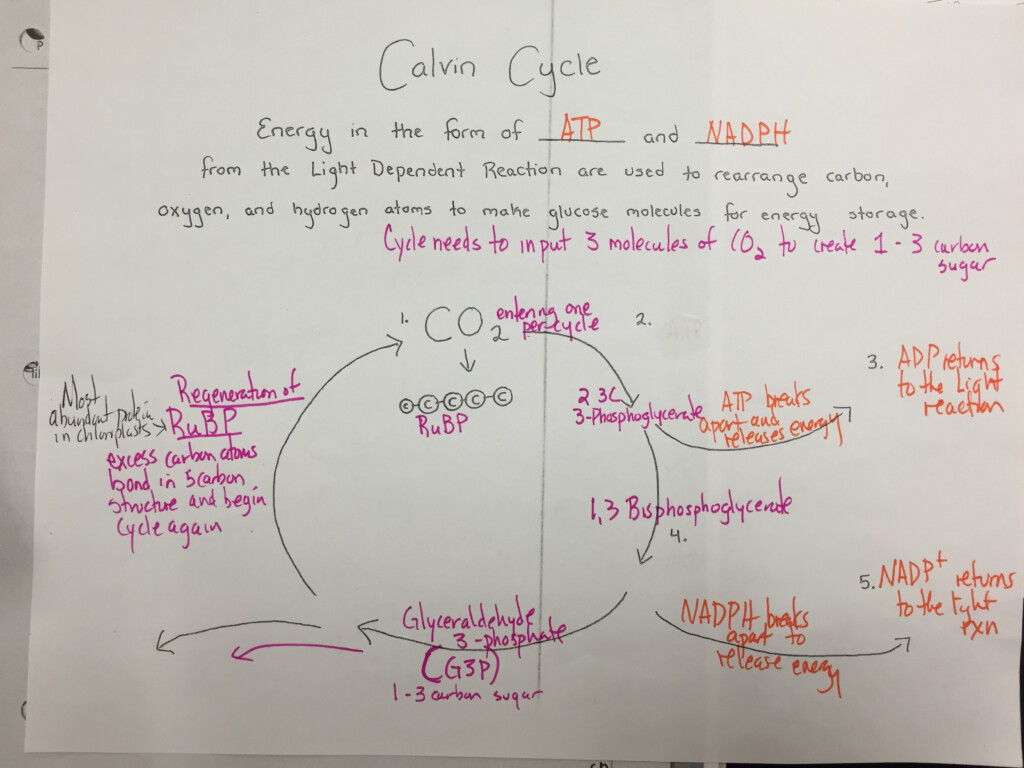 Calvin Cycle
Energy in the form of ATP and NADPH
from the Light Dependent Reaction are used to rearrange carbon,
oxygen, and hydrogen atoms to make glucose molecules for energy storage.
Cycle needs to input 3 molecules of CO2 to create 1 - 3 carbon
sugar
1. CO2 entering one
per cycle
2.
C C C C C
RuBP
2 3C
3-Phosphoglycerate
ATP breaks
apart and
releases energy
3. ADP returns
to the Light
reaction
1,3 Bisphosphoglycerate
4.
NADPH breaks
apart to
release energy
5. NADP+ returns
to the light
rxn
Glyceraldehyde
3-phosphate
(G3P)
1-3 carbon sugar
Most
abundant protein
in chloroplasts
Regeneration of
RuBP
excess carbon atoms
bond in 5 carbon
structure and begin
cycle again
P